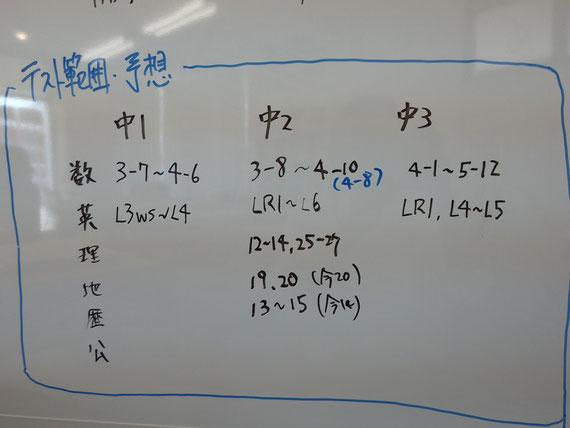 テスト範囲・予想
中1 中2 中3
数 3-7~4-6 3-8~4-10 4-1~5-12
(4-8)
英 L3ws~L4 LR1~L6 LR1, L4~L5
理 12~14, 25-27
地 19, 20 (今20)
歴 13~15 (今14)
公